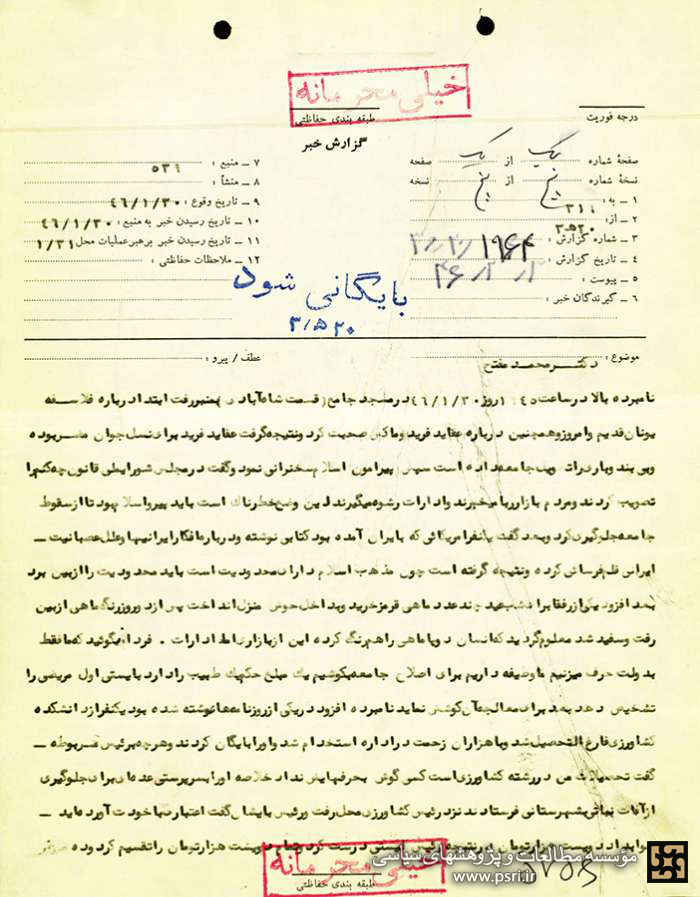 خیلی محرمانه
طبقه بندی حفاظتی
درجه فوریت
گزارش خبر
صفحهٔ شماره یک از یک صفحه
نسخهٔ شماره پنج از پنج نسخه
۱ - به: ۳۱۱
۲ - از: ۳۰۵۲۰
۳ - شماره گزارش:
۴ - تاریخ گزارش:
۵ - پیوست:
۶ - گیرندگان خبر:
۷ - منبع: ۵۳۹
۸ - منشأ:
۹ - تاریخ وقوع: ۴۶/۱/۳۰
۱۰ - تاریخ رسیدن خبر به منبع: ۴۶/۱/۳۰
۱۱ - تاریخ رسیدن خبر برهبر عملیات محل: ۱/۳۱
۱۲ - ملاحظات حفاظتی:
بایگانی شود
۳/۵۲۰
موضوع: دکتر محمد مفتح
عطف / پیرو:
نامبرده بالا در ساعت روز ۴۶/۱/۳۰ در مسجد جامع (قسمت شاه آبادی) بمنبر رفت ابتدا درباره فلاسفه
یونان قدیم و امروز و همچنین درباره عقاید فروید و مارکس صحبت کرد و نتیجه گرفت عقاید فروید برای نسل جوان مضر بوده
و بی بند و باری را ترویج جامعه داده است سپس پیرامون اسلام سخنرانی نمود و گفت در مجلس شورا یعلی قانون چک را
تصویب کردند و مردم بازار ربا میخورند و ادارات رشوه میگیرند این وضع خطرناک است باید پیرو اسلام بود تا از سقوط
جامعه جلوگیری کرد و بعد گفت یکنفر امریکائی که بایران آمده بود کتابی نوشته و درباره افکار ایرانیها و علل عصبانیت -
ایرانی قلمفرسائی کرده و نتیجه گرفته است چون مذهب اسلام دارای محدودیت است باید محدودیت را از بین برد
بعد افزود یکی از رفقا برای شب عید چند عدد ماهی قرمز خرید و بداخل حوض منزل انداخت پس از دو روز رنگ ماهی از بین
رفت و سفید شد معلوم گردید که انسان دو پا ماهی را هم رنگ کرده این از بازار اما ادارات . فردا نگوئید که ما فقط
بدولت حرف میزنیم ما وظیفه داریم برای اصلاح جامعه بکوشیم یک مبلغ حکم یک طبیب را دارد بایستی اول مریض را
تشخیص دهد بعد برای معالجه آن کوشش نماید نامبرده افزود در یکی از روزنامه ها نوشته شده بود یکنفر از دانشکده
کشاورزی فارغ التحصیل شد و با هزاران زحمت در اداره استخدام شد و او را بایگان کردند و هر چه برئیس مربوطه -
گفت تحصیلات من در رشته کشاورزی است کسی گوش بحرفهایش نداد خلاصه او را بسرپرستی عده ای برای جلوگیری
از آفات نباتی بشهرستانی فرستادند نزد رئیس کشاورزی محل رفت و رئیس بایشان گفت اعتبارت با خودت آورده اید -
دویست هزار تومان را تقسیم کرد و ده
خیلی محرمانه
طبقه بندی حفاظتی
مؤسسه مطالعات و پژوهشهای سیاسی
www.psri.ir